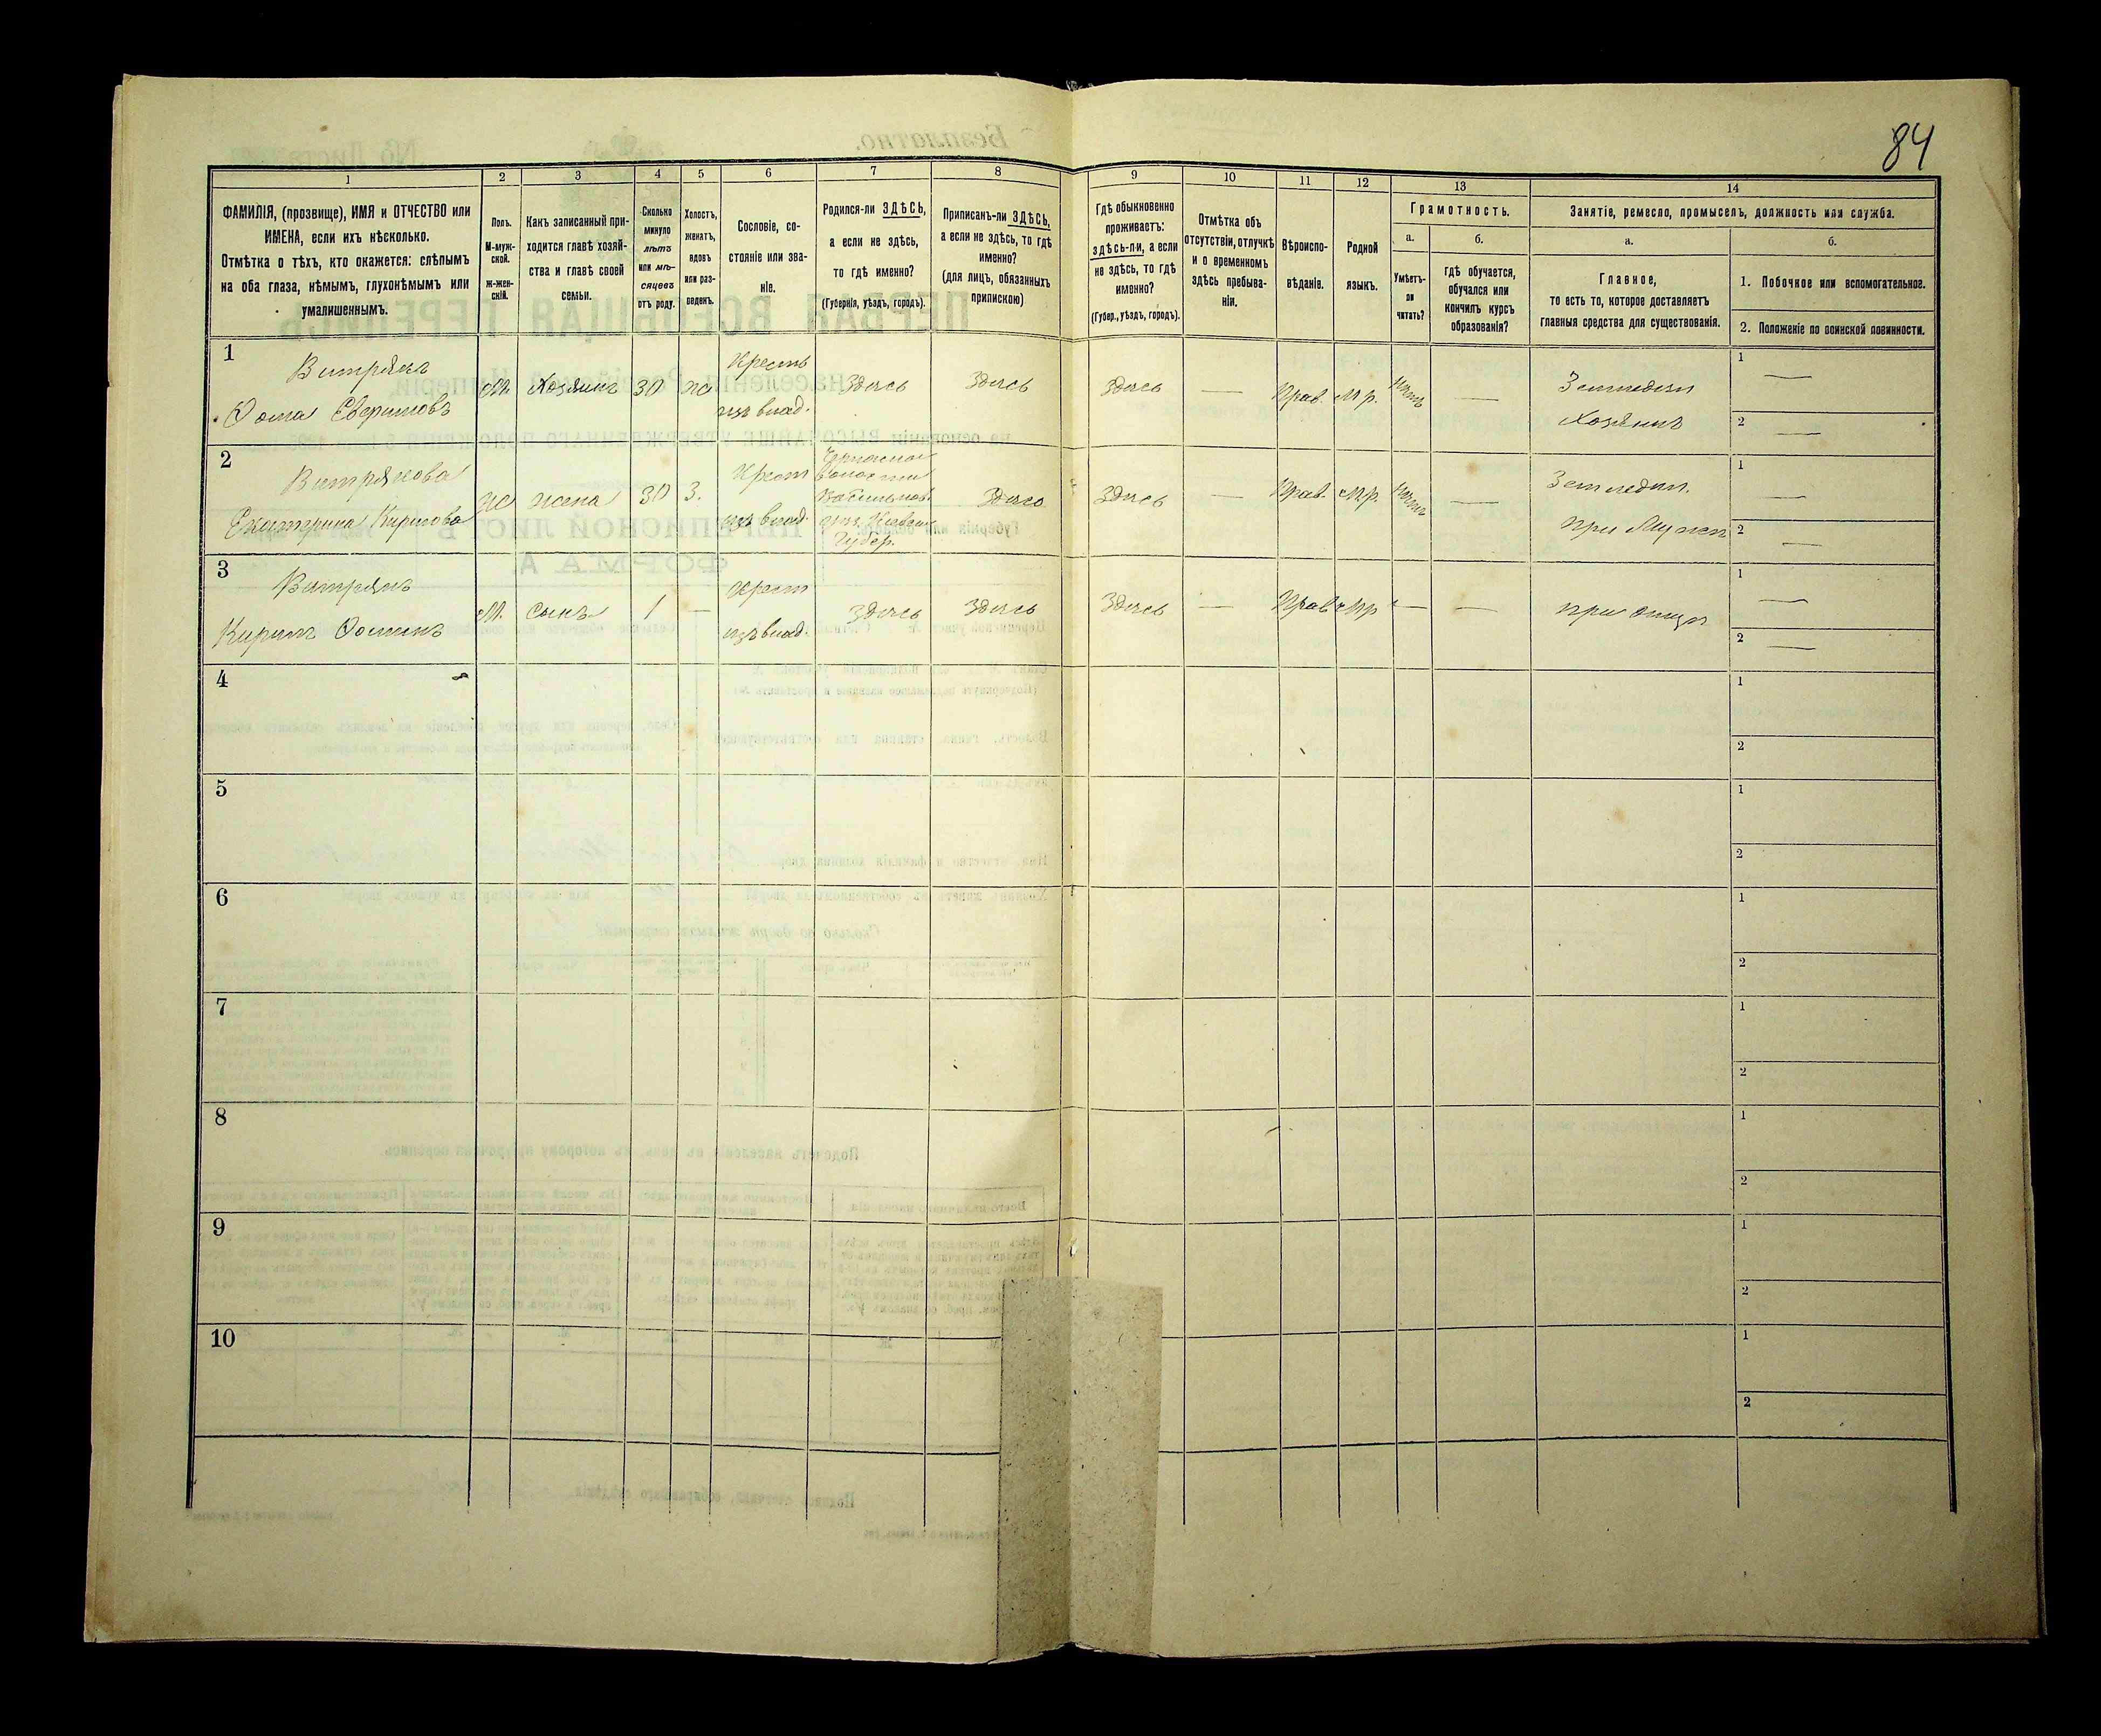 84
1
2
3
4
5
6
7
8
9
10
11
12
13
14
ФАМИЛІЯ, (прозвище), ИМЯ и ОТЧЕСТВО или
ИМЕНА, если ихъ нѣсколько.
Отмѣтка о тѣхъ, кто окажется: слѣпымъ
на оба глаза, нѣмымъ, глухонѣмымъ или
умалишеннымъ.
Полъ.
М-муж-
ской.
Ж-жен-
скій.
Какъ записанный при-
ходится главѣ хозяй-
ства и главѣ своей
семьи.
Сколько
минуло
лѣтъ
или мѣ-
сяцевъ
отъ роду.
Холостъ,
женатъ,
вдовъ
или раз-
веденъ.
Сословіе, со-
стояніе или зва-
ніе.
Родился-ли ЗДѢСЬ,
а если не здѣсь,
то гдѣ именно?
(Губернія, уѣздъ, городъ).
Приписанъ-ли ЗДѢСЬ,
а если не здѣсь, то гдѣ
именно?
(для лицъ, обязанныхъ
припискою)
Гдѣ обыкновенно
проживаетъ:
здѣсь-ли, а если
не здѣсь, то гдѣ
именно?
(Губер., уѣздъ, городъ).
Отмѣтка объ
отсутствіи, отлучкѣ
и о временномъ
здѣсь пребыва-
ніи.
Вѣроиспо-
вѣданіе.
Родной
языкъ.
Грамотность.
а.
Умѣетъ-
ли
читать?
б.
гдѣ обучается,
обучался или
кончилъ курсъ
образованія?
Занятіе, ремесло, промыселъ, должность или служба.
а.
Главное,
то есть то, которое доставляетъ
главныя средства для существованія.
б.
1. Побочное или вспомогательное.
2. Положеніе по воинской повинности.
1
Витрякъ
Ѳома Евфимовъ
М.
Хозяинъ
30
жа
Крестъ
изъ влад.
Здѣсь
Здѣсь
Здѣсь
—
Прав.
Мр.
нѣтъ
—
Земледѣл
Хозяинъ
1 —
2 —
2
Витрякова
Екатерина Кирилова
Ж
жена
30
з.
Крест
изъ влад.
волости
Губер.
Здѣсь
Здѣсь
—
Прав.
Мр.
нѣтъ
—
Земледѣл.
при Мужѣ
1 —
2 —
3
Витрякъ
Кирилъ Ѳоминъ
М.
сынъ
1
—
Крест
изъ влад.
Здѣсь
Здѣсь
Здѣсь
—
Прав
Мр
—
—
при отцѣ
1 —
2 —
4
1
2
5
1
2
6
1
2
7
1
2
8
1
2
9
1
2
10
1
2